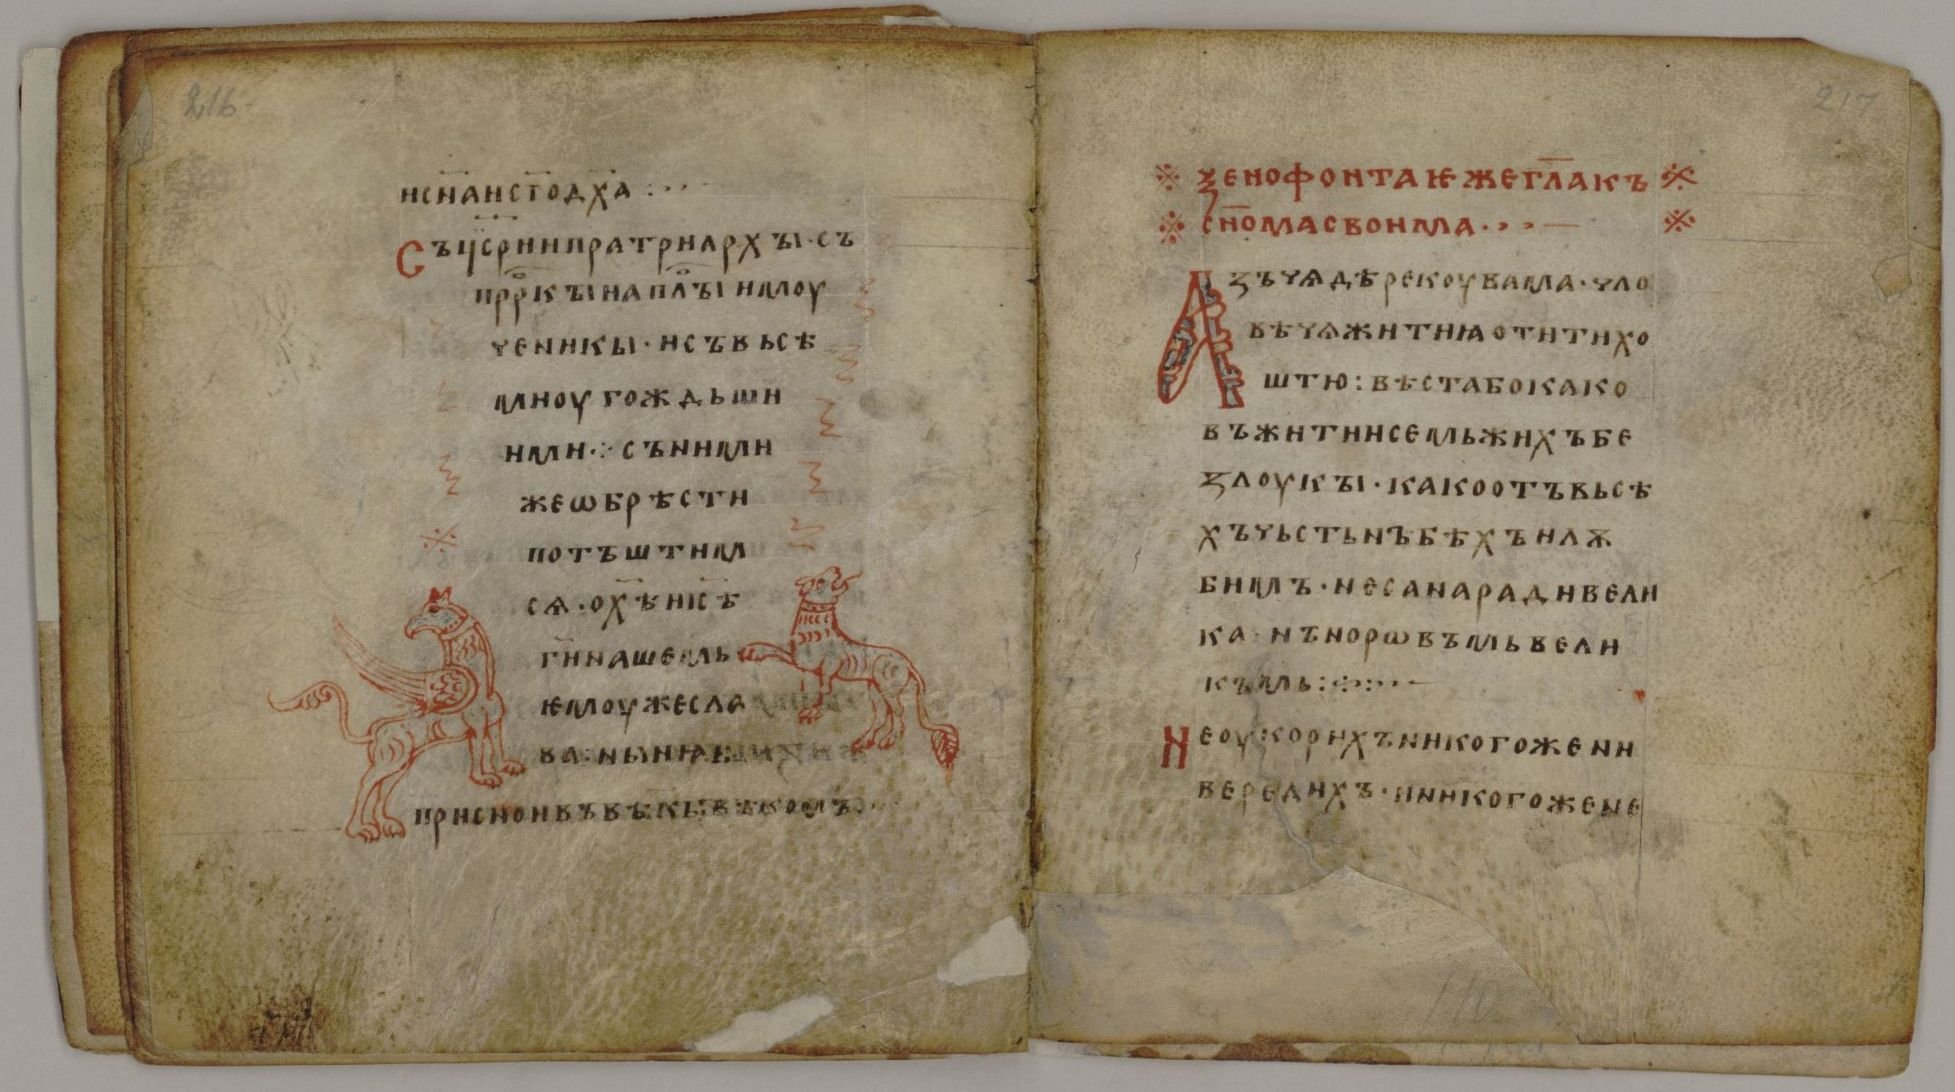 216
исн҃анст҃одх҃а : · · ·
Съцс҃рнипратриархъі · съ
пррⷪ҇къінапⷭ҇лъінимоу
ченикы · исъвьсѣ
мноугождьши
ими · : · сънимн
жеѡбрѣсти
потъштим
сѧ · ох҃ѣис҃ѣ
г҃инашемь
ѥмоужесла
ва · нъінѩ
присноивъвѣкъівѣкомъ
217
※ ꙁенофонтаѥжегл҃акъ ※
※ сн҃омасвоима · · · — ※
Аꙁъчѧдѣрекоувама · чло
вѣчѧжитиꙗотитихо
штю : вѣстабокако
въжитиисемьжихъбе
ꙁлоукъі · какоотъвьсѣ
хъчьстьнъбѣхънлѫ
бимъ · несанарадивели
ка · нънорѡвъмьвели
къмь : · : · · —
Неоукорихъникогожени
вередихъ · иникогожене